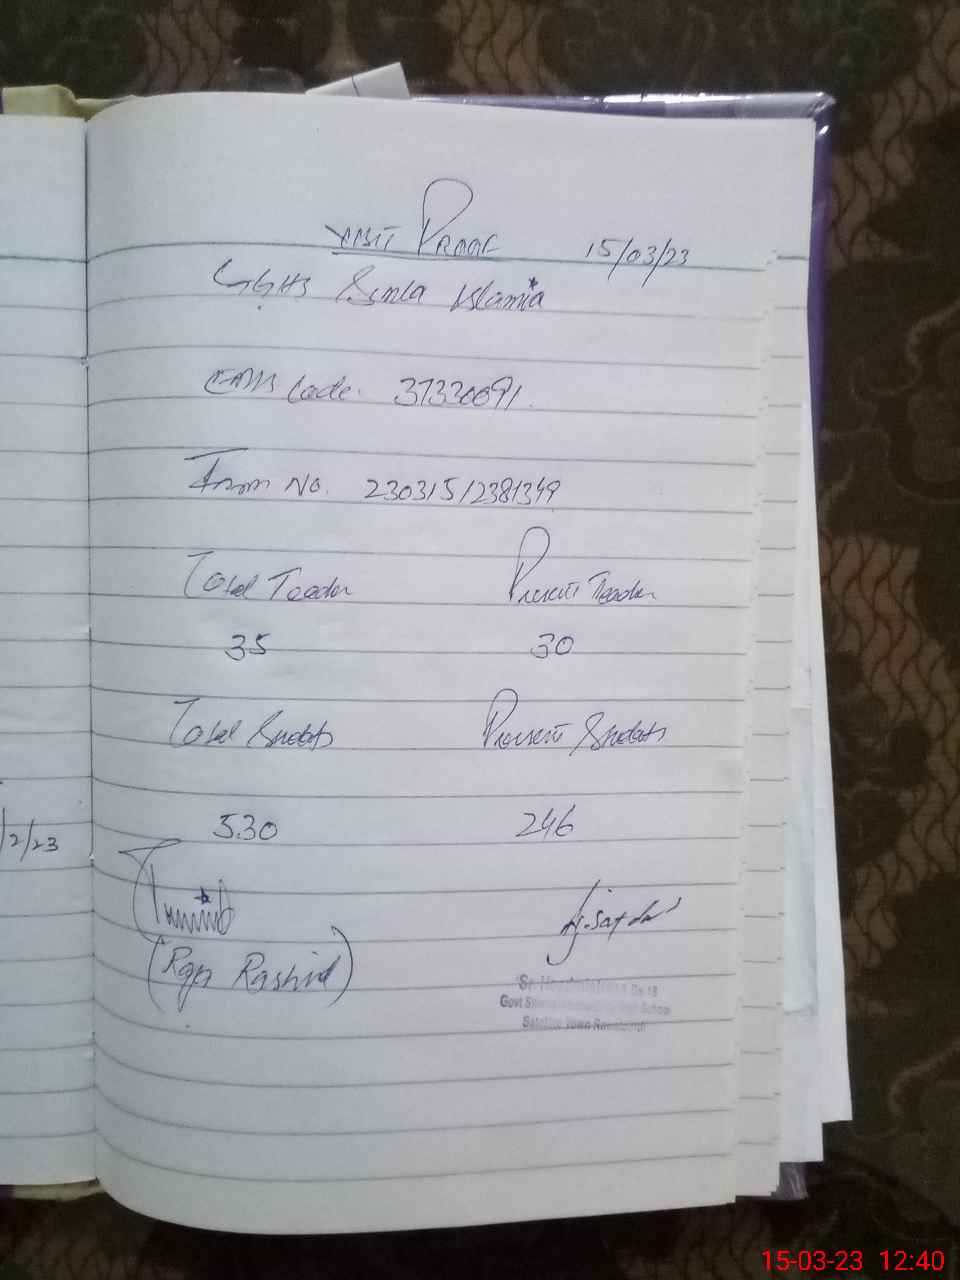 VISIT PROOF 15/03/23
GGHS Simla Islamia
EMIS Code. 37330091.
From No. 230315/2381349
Total Teacher Present Teacher
35 30
Total Students Present Students
530 246
/2/23
(Raja Rashid)
Sr. Headmistress Bs 18
Govt School
Satellite Town Rawalpindi
15-03-23 12:40